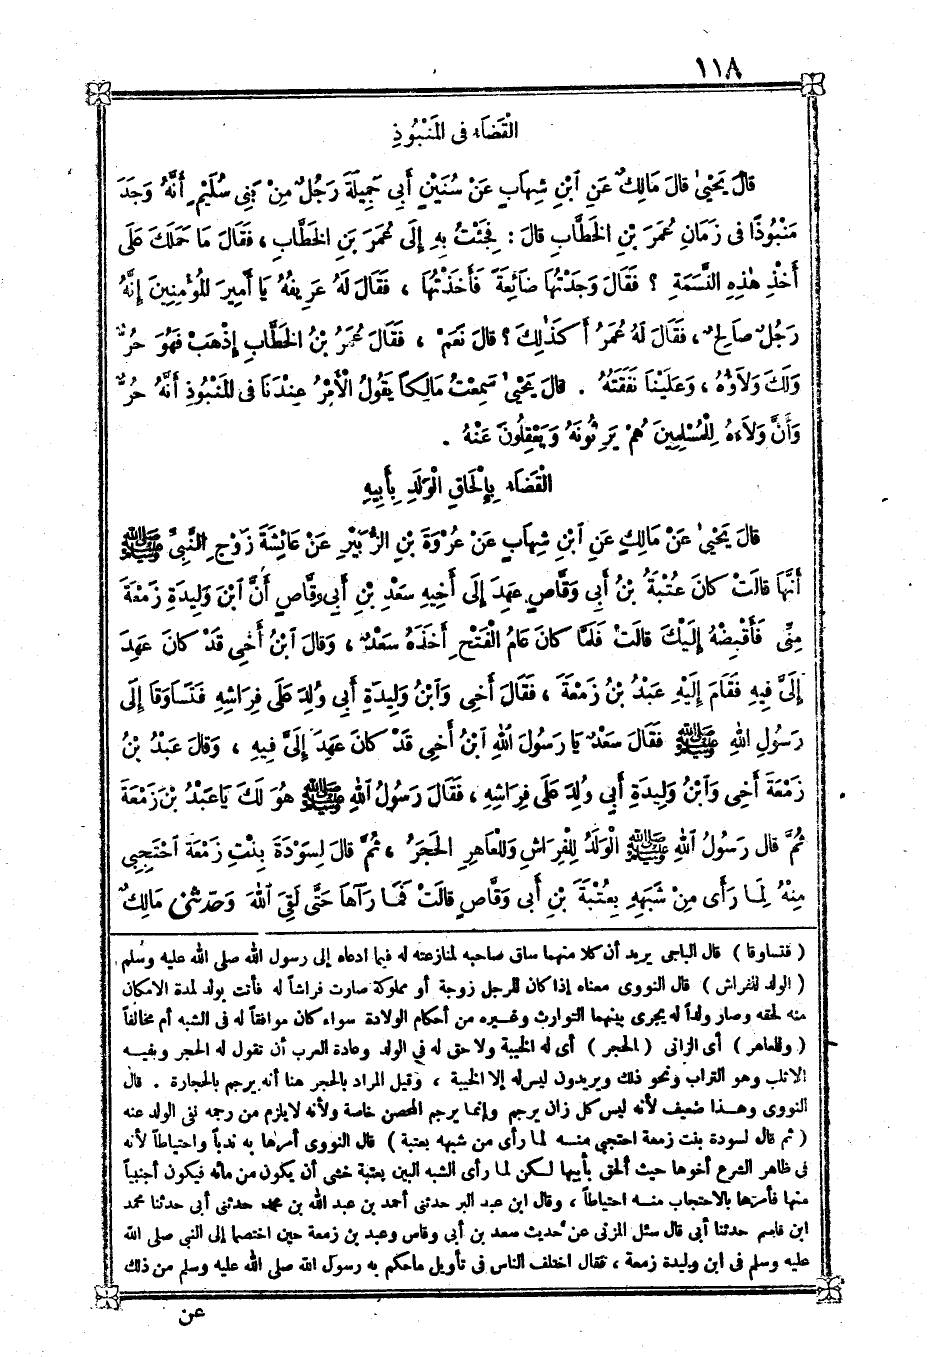 ١١٨
الْقَضَاءُ فِى الْمَنْبُوذِ
قَالَ يَحْيَىٰ قَالَ مَالِكٌ عَنِ ٱبْنِ شِهَابٍ عَنْ سُنَيْنٍ أَبِى جَمِيلَةَ رَجُلٌ مِنْ بَنِى سُلَيْمٍ أَنَّهُ وَجَدَ
مَنْبُوذًا فِى زَمَانِ عُمَرَ بْنِ الْخَطَّابِ قَالَ : فَجِئْتُ بِهِ إِلَى عُمَرَ بَنِ الْخَطَّابِ ، فَقَالَ مَا حَمَلَكَ عَلَى
أَخْذِ هٰذِهِ النَّسَمَةِ ؟ فَقَالَ وَجَدْتُهَا ضَائِعَةً فَأَخَذْتُهَا ، فَقَالَ لَهُ عَرِيفُهُ يَا أَمِيرَ الْمُؤْمِنِينَ إِنَّهُ
رَجُلٌ صَالِحٌ ، فَقَالَ لَهُ عُمَرُ أَكَذٰلِكَ ؟ قَالَ نَعَمْ ، فَقَالَ عُمَرُ بْنُ الْخَطَّابِ إِذْهَبْ فَهُوَ حُرٌّ
وَلَكَ وَلَاؤُهُ ، وَعَلَيْنَا نَفَقَتُهُ . قَالَ يَحْيَىٰ سَمِعْتُ مَالِكاً يَقُولُ الْأَمْرُ عِنْدَنَا فِى الْمَنْبُوذِ أَنَّهُ حُرٌّ
وَأَنَّ وَلَاءَهُ لِلْمُسْلِمِينَ هُمْ يَرِثُونَهُ وَيَعْقِلُونَ عَنْهُ .
الْقَضَاءُ بِإِلْحَاقِ الْوَلَدِ بِأَبِيهِ
قَالَ يَحْيَىٰ عَنْ مَالِكٍ عَنِ ٱبْنِ شِهَابٍ عَنْ عُرْوَةَ بْنِ الزُّبَيْرِ عَنْ عَائِشَةَ زَوْجِ النَّبِىِّ ﷺ
أَنَّهَا قَالَتْ كَانَ عُتْبَةُ بْنُ أَبِى وَقَّاصٍ عَهِدَ إِلَى أَخِيهِ سَعْدِ بْنِ أَبِى وَقَّاصٍ أَنَّ ٱبْنَ وَلِيدَةِ زَمْعَةَ
مِنِّى فَأَقْبِضْهُ إِلَيْكَ قَالَتْ فَلَمَّا كَانَ عَامُ الْفَتْحِ أَخَذَهُ سَعْدٌ ، وَقَالَ ٱبْنُ أَخِى قَدْ كَانَ عَهِدَ
إِلَىَّ فِيهِ فَقَامَ إِلَيْهِ عَبْدُ بْنُ زَمْعَةَ ، فَقَالَ أَخِى وَٱبْنُ وَلِيدَةِ أَبِى وُلِدَ عَلَى فِرَاشِهِ فَتَسَاوَقَا إِلَى
رَسُولِ اللهِ ﷺ فَقَالَ سَعْدٌ يَا رَسُولَ اللهِ ٱبْنُ أَخِى قَدْ كَانَ عَهِدَ إِلَىَّ فِيهِ ، وَقَالَ عَبْدُ بْنُ
زَمْعَةَ أَخِى وَٱبْنُ وَلِيدَةِ أَبِى وُلِدَ عَلَى فِرَاشِهِ ، فَقَالَ رَسُولُ اللهِ ﷺ هُوَ لَكَ يَاعَبْدُ بْنَ زَمْعَةَ
ثُمَّ قَالَ رَسُولُ اللهِ ﷺ الْوَلَدُ لِلْفِرَاشِ وَلِلْعَاهِرِ الْحَجَرُ ، ثُمَّ قَالَ لِسَوْدَةَ بِنْتِ زَمْعَةَ ٱحْتَجِبِى
مِنْهُ لِمَا رَأَى مِنْ شَبَهِهِ بِعُتْبَةَ بْنِ أَبِى وَقَّاصٍ قَالَتْ فَمَا رَآهَا حَتَّى لَقِىَ اللهَ وَحَدَّثَنِى مَالِكٌ
( فتساوقا ) قال الباجى يريد أن كلا منهما ساق صاحبه لمنازعته له فيما ادعاه إلى رسول الله صلى الله عليه وسلم
( الولد للفراش ) قال النووى معناه إذا كان للرجل زوجة أو مملوكة صارت فراشاً له فأتت بولد لمدة الامكان
منه لحقه وصار ولداً له يجرى بينهما التوارث وغيره من أحكام الولادة سواء كان موافقاً له فى الشبه أم مخالفاً
( وللعاهر ) أى الزانى ( الحجر ) أى له الخيبة ولا حق له فى الولد وعادة العرب أن تقول له الحجر وبفيه
الاثلب وهو التراب ونحو ذلك ويريدون ليس له إلا الخيبة ، وقيل المراد بالحجر هنا أنه يرجم بالحجارة . قال
النووى وهذا ضعيف لأنه ليس كل زان يرجم وإنما يرجم المحصن خاصة ولأنه لايلزم من رجمه نفى الولد عنه
( ثم قال لسودة بنت زمعة احتجبى منه لما رأى من شبهه بعتبة ) قال النووى أمرها به ندباً واحتياطاً لأنه
فى ظاهر الشرع أخوها حيث ألحق بأبيها لكن لما رأى الشبه البين بعتبة خشى أن يكون من مائه فيكون أجنبياً
منها فأمرها بالاحتجاب منه احتياطاً ، وقال ابن عبد البر حدثنى أحمد بن عبد الله بن محمد حدثنى أبى حدثنا محمد
ابن قاسم حدثنا أبى قال سئل المزنى عن حديث سعد بن أبى وقاص وعبد بن زمعة حين اختصما إلى النبى صلى الله
عليه وسلم فى ابن وليدة زمعة ، فقال اختلف الناس فى تأويل ماحكم به رسول الله صلى الله عليه وسلم من ذلك
عن